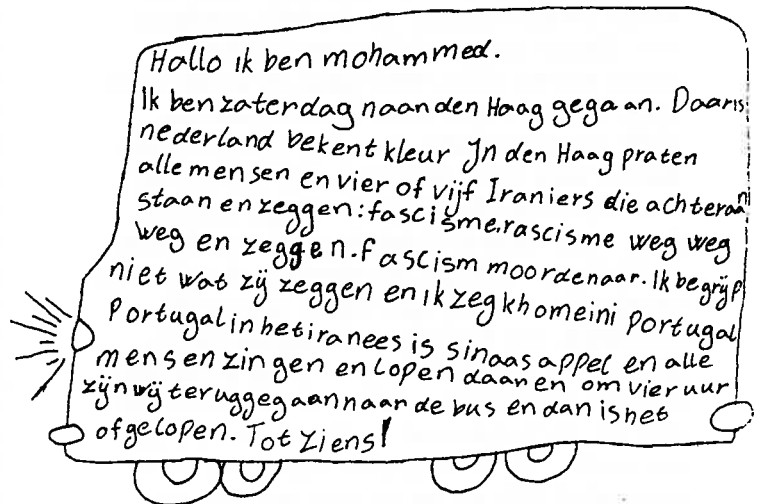 Hallo ik ben mohammed.
Ik ben zaterdag naar den Haag gegaan. Daar is
nederland bekent kleur In den Haag praten
alle mensen en vier of vijf Iraniers die achteraan
staan en zeggen: fascisme, rascisme weg weg
weg en zeggen. fascism moordenaar. Ik begrijp
niet wat zij zeggen en ik zeg khomeini Portugal
Portugal in het iranees is sinaasappel en alle
mensen zingen en lopen daar en om vier uur
zijn wij teruggegaan naar de bus en dan is het
ofgelopen. Tot ziens!